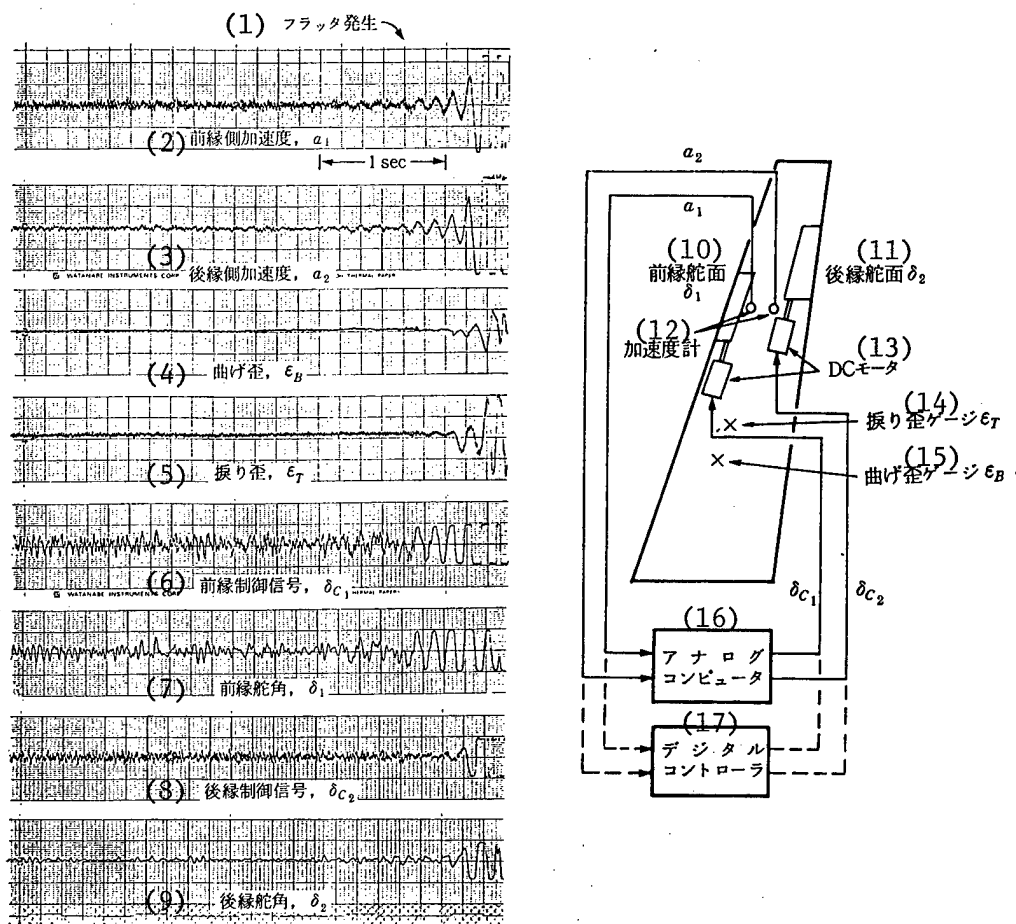 (1) フラッタ発生
(2) 前縁側加速度, a₁
1 sec
(3)
後縁側加速度, a₂
WATANABE INSTRUMENTS CORP
THERMAL PAPER
(4) 曲げ歪, ε_B
(5) 捩り歪, ε_T
(6) 前縁制御信号, δ_C₁
WATANABE INSTRUMENTS CORP
THERMAL PAPER
(7) 前縁舵角, δ₁
(8) 後縁制御信号, δ_C₂
(9) 後縁舵角, δ₂
a₂
a₁
(10)
前縁舵面
δ₁
(11)
後縁舵面 δ₂
(12)
加速度計
(13)
DCモータ
(14)
捩り歪ゲージ ε_T
(15)
曲げ歪ゲージ ε_B
δ_C₁
δ_C₂
(16)
アナログ
コンピュータ
(17)
デジタル
コントローラ